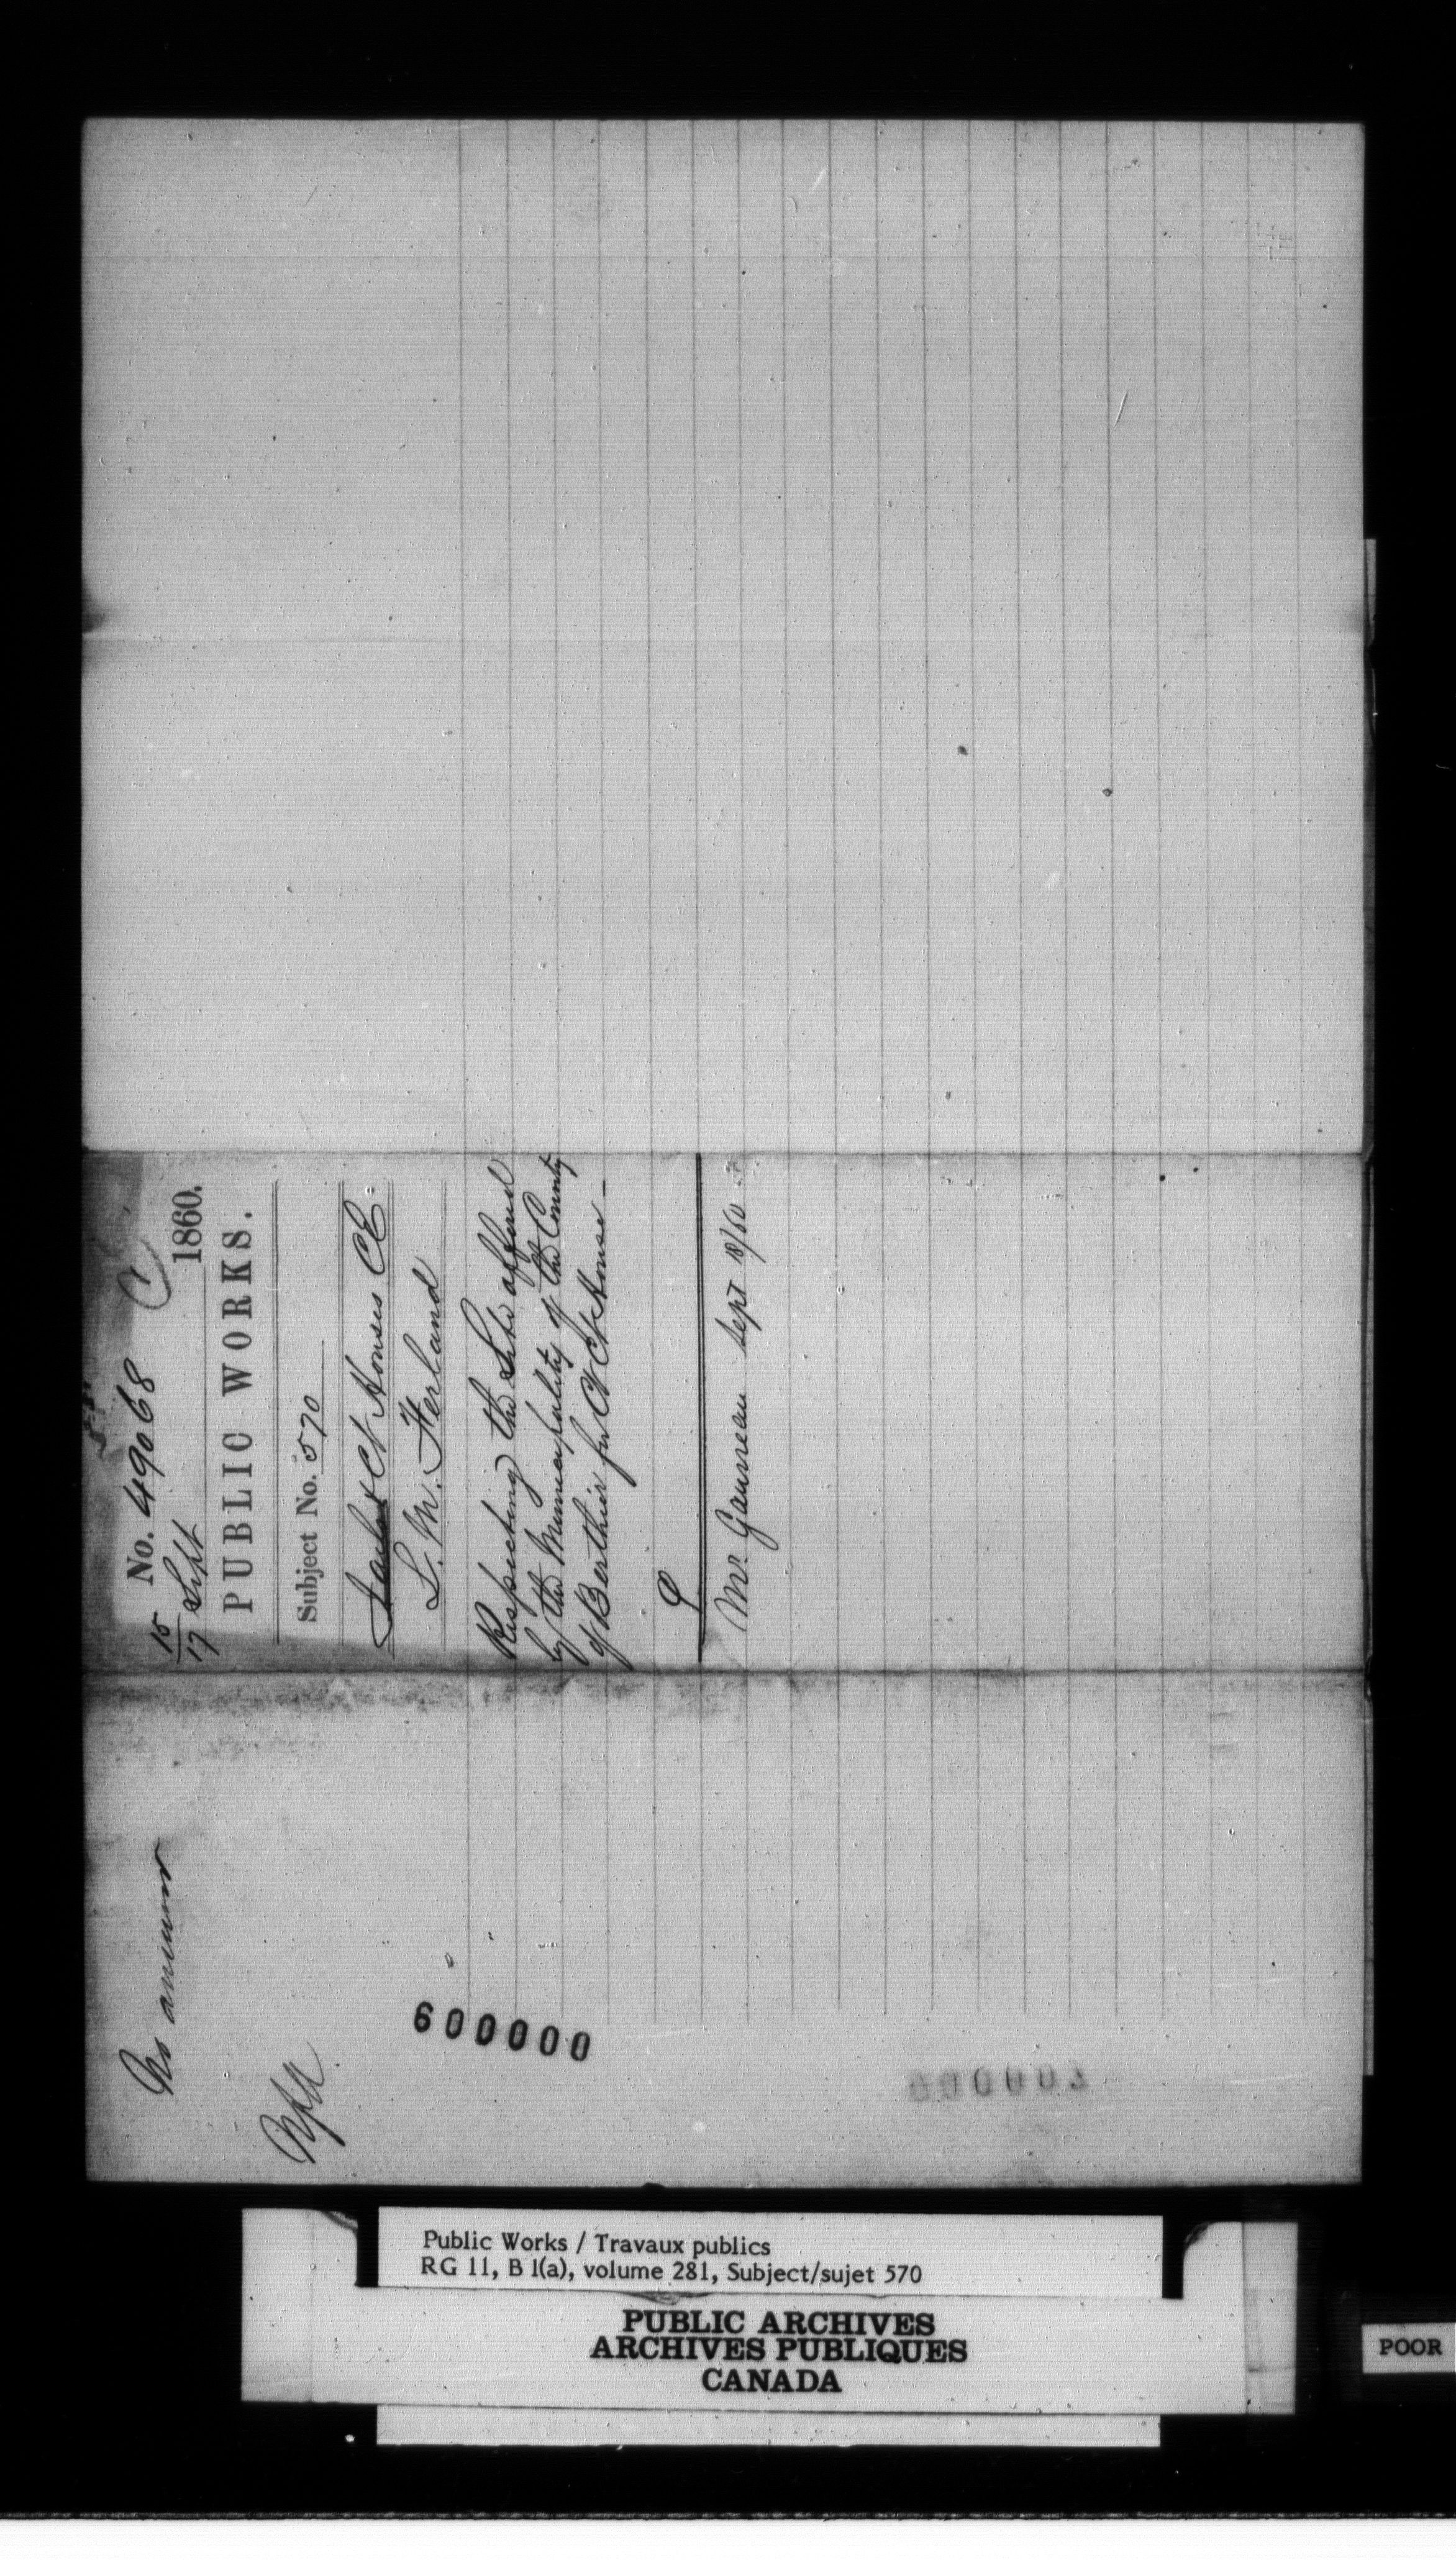 No. 49068
15
17 Sept 1860.
PUBLIC WORKS.
Subject No. 570
Jails & Ct Houses CE.
L. M. Ferland
Respecting the Site offered
by the Municipality of the County
of Berthier for Ct House —
Mr. Gauvreau Sept 18/60
No answer
600000
Public Works / Travaux publics
RG 11, B 1(a), volume 281, Subject/sujet 570
PUBLIC ARCHIVES
ARCHIVES PUBLIQUES
CANADA
POOR